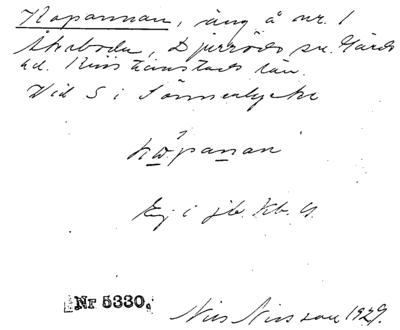 Kopannan, äng å nr. 1
Skaboda, Djurröds sn. Gärds
hd. Kristianstads län.
Vid S i Sönnerlycke
kopanan
Ej i jb. Kb. G.
Nr 5330.
Nils Nilsson 1929.